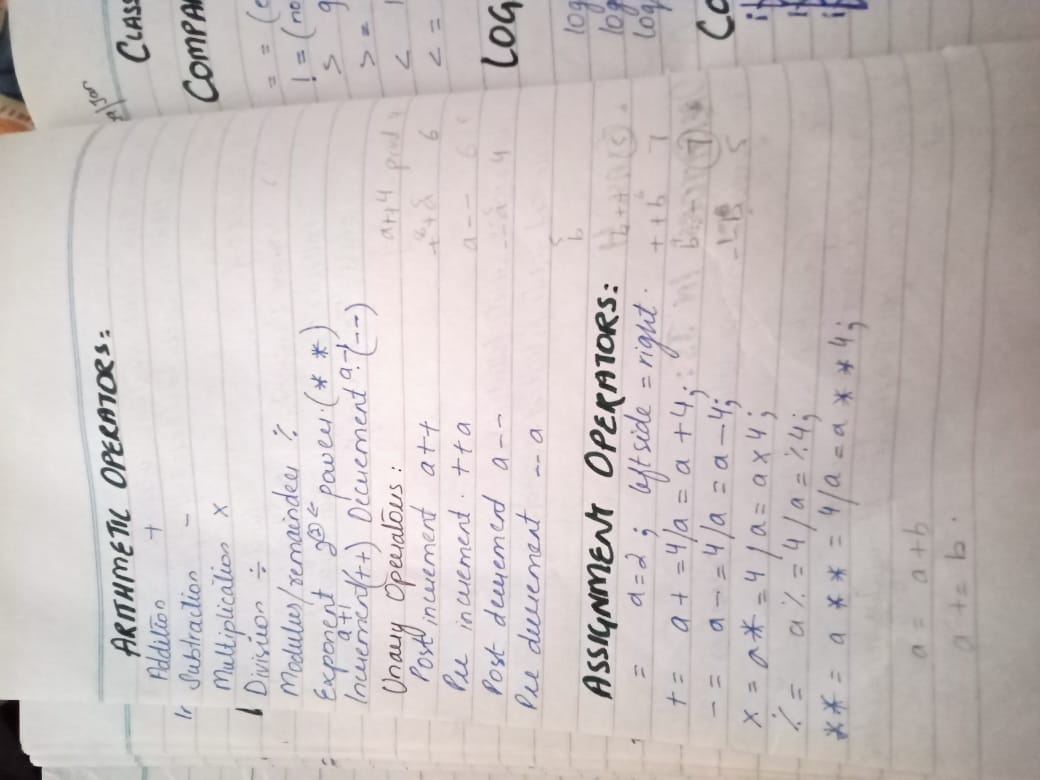 ARITHMETIC OPERATORS:
Addition +
Subtraction -
Multiplication ×
Division ÷
Modulus/remainder
Exponent power (**)
a+1 a-1
Increment(++) Decrement (--)
Unary Operators:
Post increment a++
Pre increment ++a
Post decrement a--
Pre decrement --a
a++ 4
6
a--
4
b
b++ (5)
++b 7
(7)
--b 5
ASSIGNMENT OPERATORS:
= a=2; left side = right.
+= a+=4/a=a+4;
-= a-=4/a=a-4;
×= a*=4/a=a×4;
%= a%=4/a=%4;
**= a**=4/a=a**4;
a = a+b
a+= b.
CLASS
COMPA
==
!= (no
>
>=
<
<=
LOG
log
log
log
CO
if